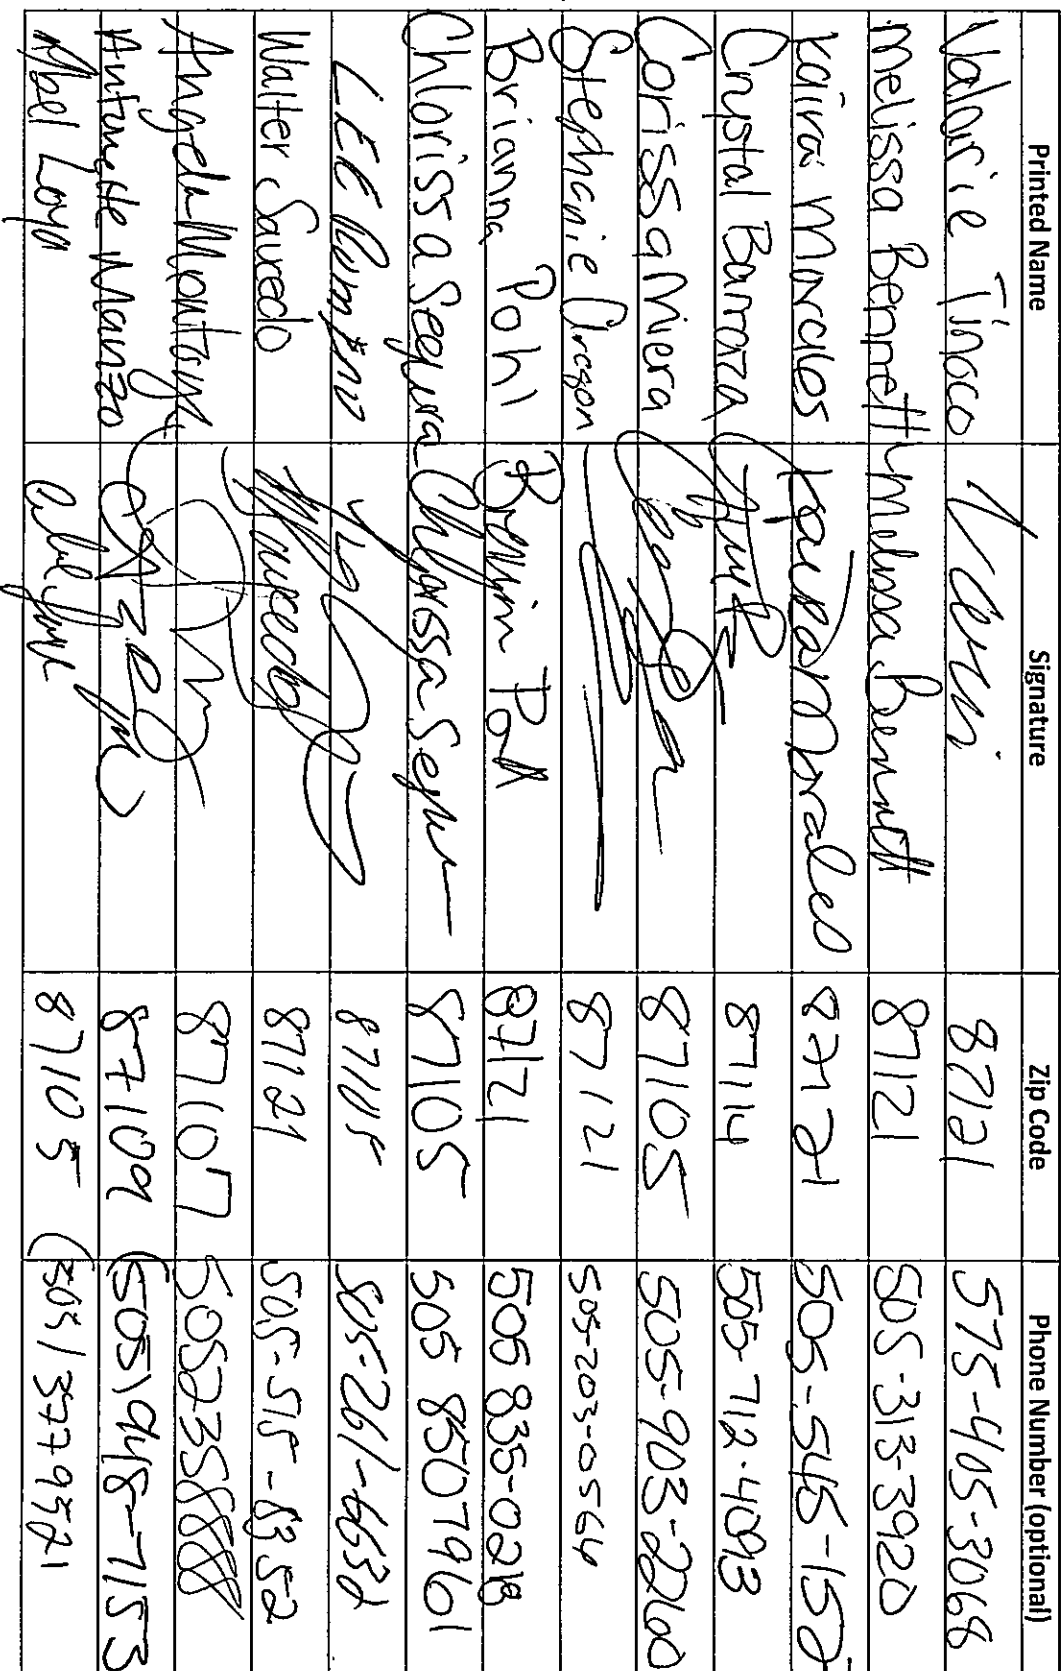 Printed Name Signature Zip Code Phone Number (optional)
Valarie Tinoco 87121 575-405-3068
Melissa Bennett Melissa Bennett 87121 505-313-3920
Kaira Morales Kaira Morales 87121 505-545-152
Crystal Barraza 87114 505-712-4093
Corissa Miera 87105 505-903-2260
Stephanie Aragon 87121 505-203-0564
Brianna Pohl 87121 505 835-0218
Chlorissa Segura Chlorissa Segur 87105 505 8507961
LEE 87105 505-261-6632
Walter Saucedo WSaucedo 87121 505-515-8352
Angela Montoya 87107 5057358888
Antonette Manzo 87109 (505)948-7153
Abel Loya 87105 (505)3779521